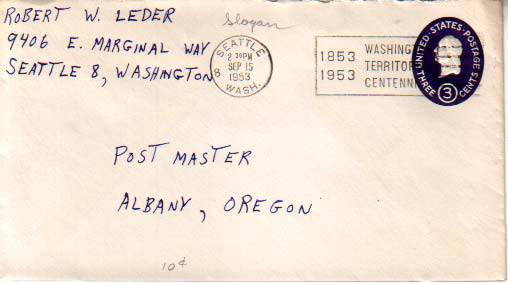 ROBERT W. LEDER
9406 E. MARGINAL WAY
SEATTLE 8, WASHINGTON
Slogan
SEATTLE
2 30PM
SEP 15
1953
8 WASH.
1853 WASHING
1953 TERRITOR
CENTENNI
UNITED · STATES · POSTAGE
THREE 3 CENTS
POST MASTER
ALBANY, OREGON
10¢